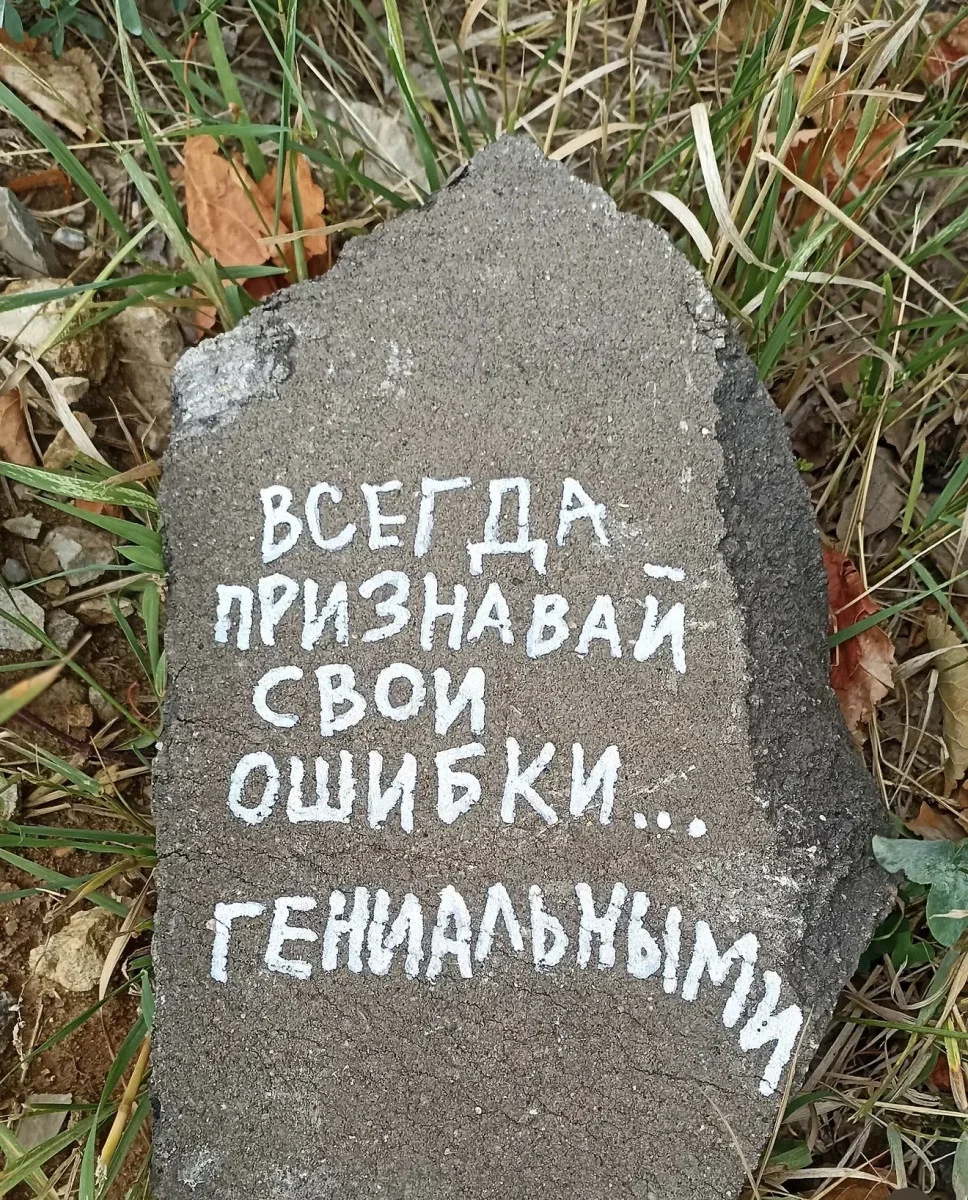 ВСЕГДА
ПРИЗНАВАЙ
СВОИ
ОШИБКИ...
ГЕНИАЛЬНЫМИ